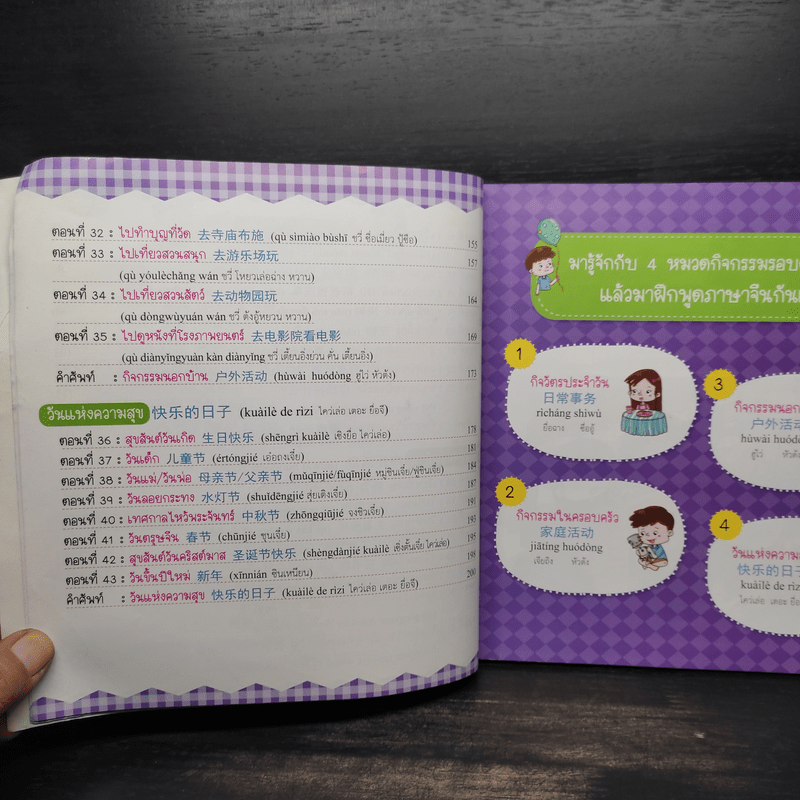 ตอนที่ 32 : ไปทำบุญที่วัด 去寺庙布施 (qù sìmiào bùshī ชวี่ ซื่อเมี่ยว ปู้ซือ) 155
ตอนที่ 33 : ไปเที่ยวสวนสนุก 去游乐场玩 157
(qù yóulèchǎng wán ชวี่ โหยวเล่อฉ่าง หวาน)
ตอนที่ 34 : ไปเที่ยวสวนสัตว์ 去动物园玩 164
(qù dòngwùyuán wán ชวี่ ต้งอู้หยวน หวาน)
ตอนที่ 35 : ไปดูหนังที่โรงภาพยนตร์ 去电影院看电影 169
(qù diànyǐngyuàn kàn diànyǐng ชวี่ เตี้ยนอิ่งย่วน คั่น เตี้ยนอิ่ง)
คำศัพท์ : กิจกรรมนอกบ้าน 户外活动 (hùwài huódòng ฮู่ไว่ หัวต้ง) 173
วันแห่งความสุข 快乐的日子 (kuàilè de rìzi ไคว่เล่อ เตอะ ยื่อจึ)
ตอนที่ 36 : สุขสันต์วันเกิด 生日快乐 (shēngrì kuàilè เชิงยื่อ ไคว่เล่อ) 178
ตอนที่ 37 : วันเด็ก 儿童节 (értóngjié เอ๋อถงเจี๋ย) 181
ตอนที่ 38 : วันแม่/วันพ่อ 母亲节/父亲节 (mǔqīnjié/fùqīnjié หมู่ชินเจี๋ย/ฟู่ชินเจี๋ย) 184
ตอนที่ 39 : วันลอยกระทง 水灯节 (shuǐdēngjié สุ่ยเติงเจี๋ย) 187
ตอนที่ 40 : เทศกาลไหว้พระจันทร์ 中秋节 (zhōngqiūjié จงชิวเจี๋ย) 191
ตอนที่ 41 : วันตรุษจีน 春节 (chūnjié ชุนเจี๋ย) 193
ตอนที่ 42 : สุขสันต์วันคริสต์มาส 圣诞节快乐 (shèngdànjié kuàilè เซิ่งตั้นเจี๋ย ไคว่เล่อ) 195
ตอนที่ 43 : วันขึ้นปีใหม่ 新年 (xīnnián ซินเหนียน) 198
คำศัพท์ : วันแห่งความสุข 快乐的日子 (kuàilè de rìzi ไคว่เล่อ เตอะ ยื่อจึ) 200
มารู้จักกับ 4 หมวดกิจกรรมรอบ
แล้วมาฝึกพูดภาษาจีนกัน
1
กิจวัตรประจำวัน
日常事务
rìcháng shìwù
ยื่อฉาง ซื่ออู้
2
กิจกรรมในครอบครัว
家庭活动
jiātíng huódòng
เจียถิง หัวต้ง
3
กิจกรรมนอก
户外活动
hùwài huód
ฮู่ไว่ หัวต้ง
4
วันแห่งความ
快乐的日子
kuàilè de rìzi
ไคว่เล่อ เตอะ ยื่อ